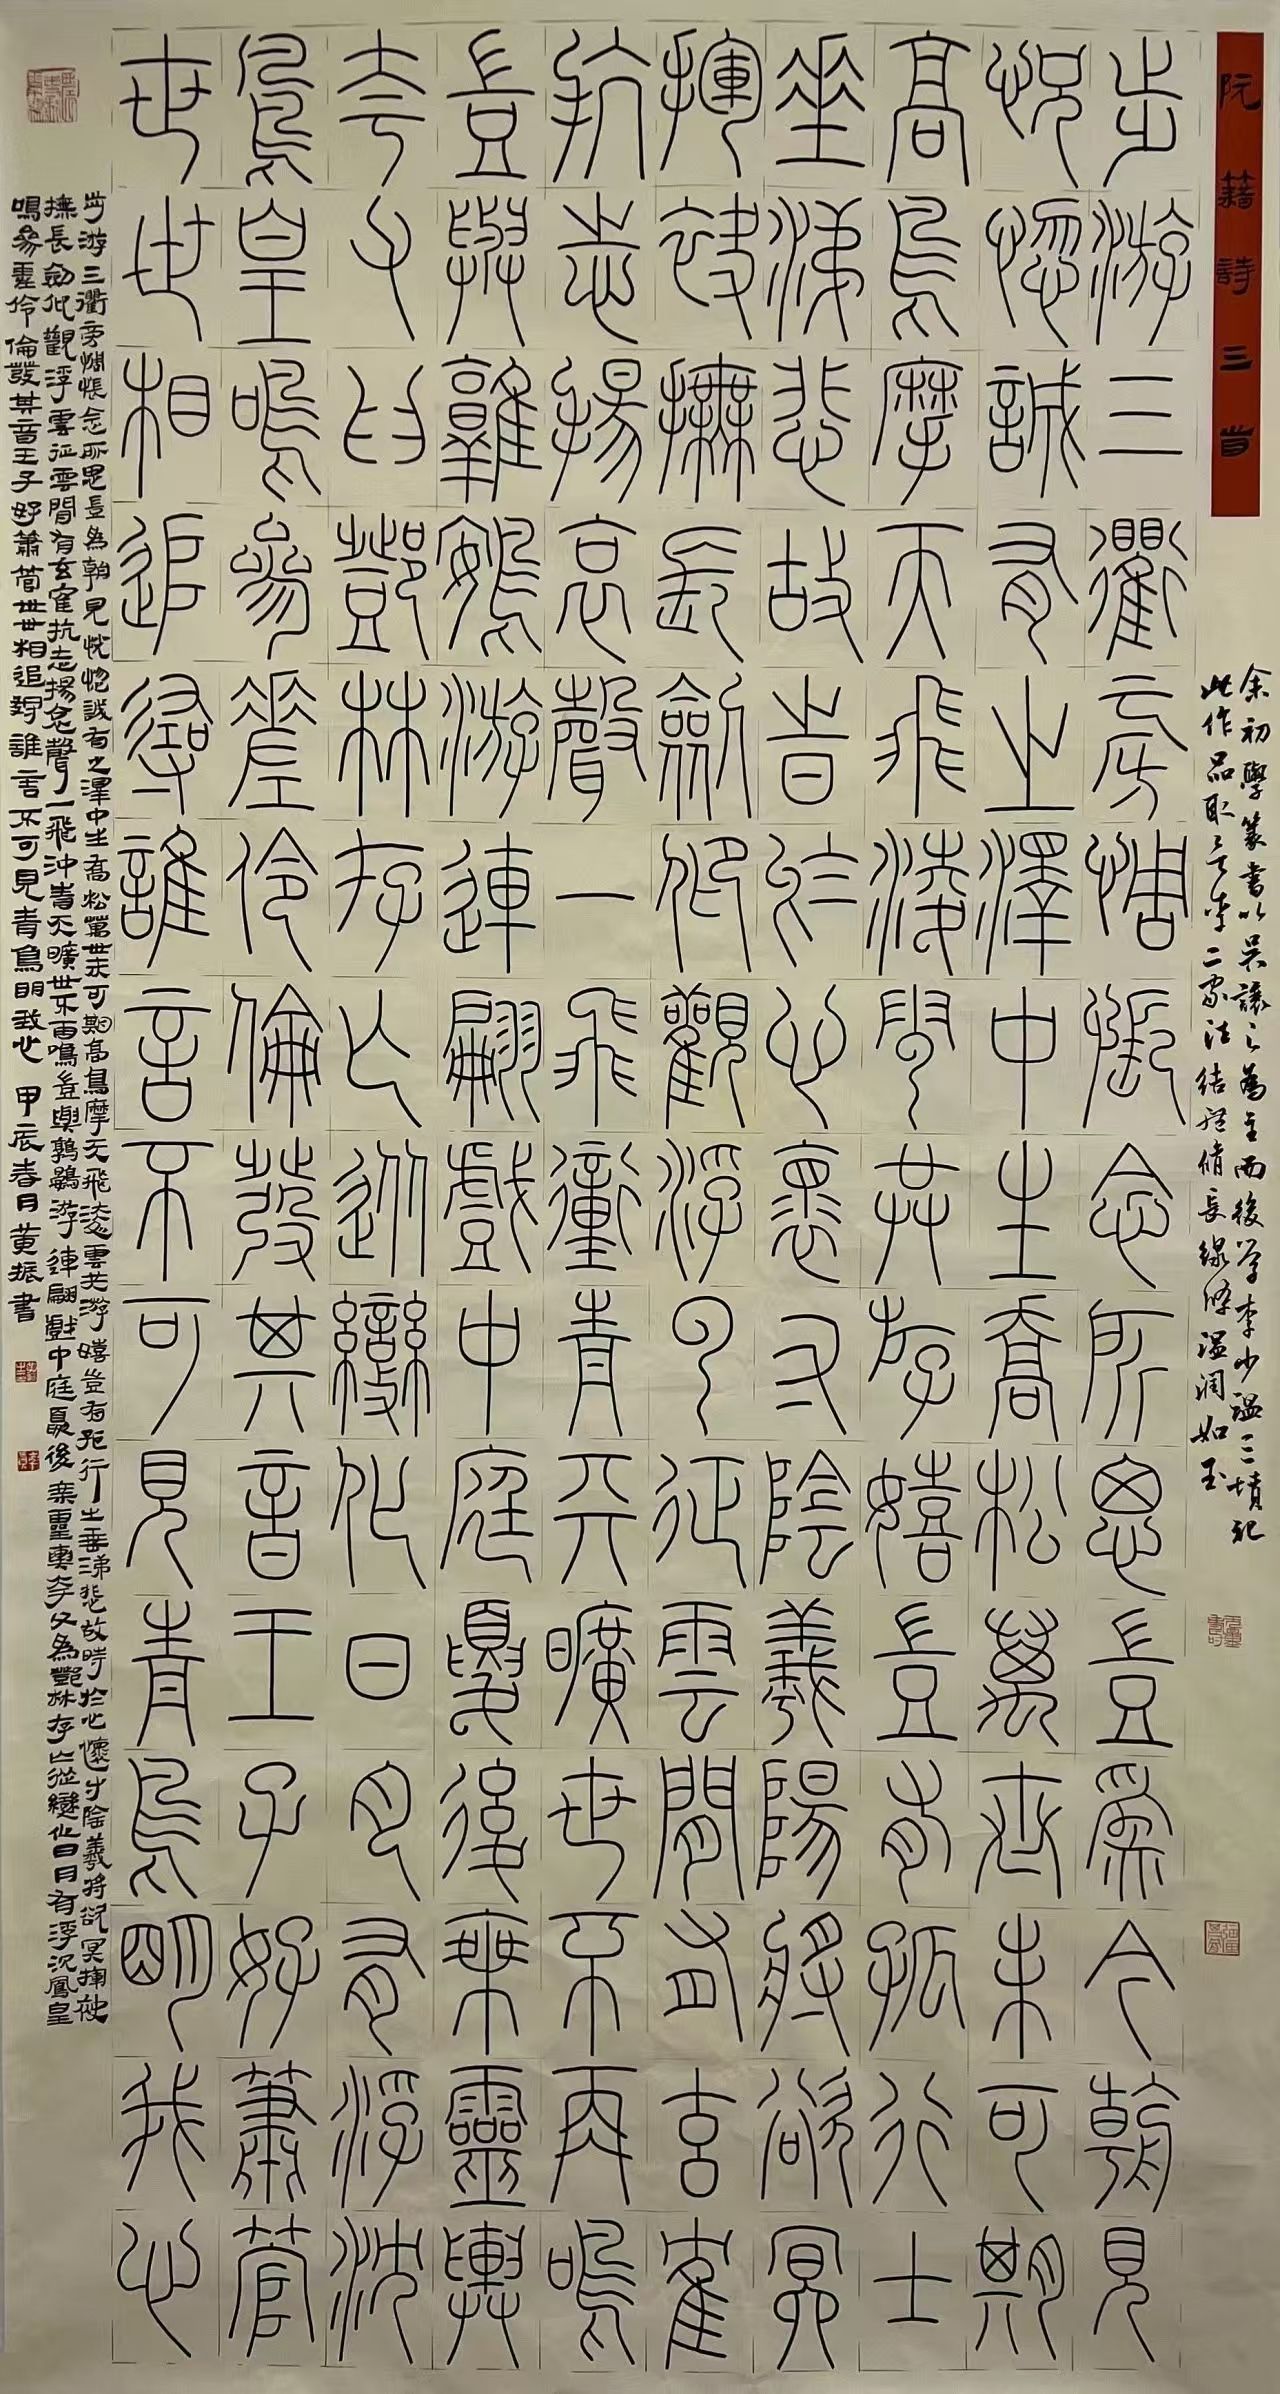 阮籍詩三首
余初學篆書以吳讓之為主而後學李少温三墳記
此作品取之吳李二家法結體脩長線條温潤如玉
步游三衢旁惆悵念所思豈為今朝見
怳惚誠有之澤中生喬松萬世未可期
高鳥摩天飛淩雲共游嬉豈有孤行士
垂涕悲故時於心懷寸陰羲陽將欲冥
揮袂撫長劒仰觀浮雲征雲間有玄鶴
抗志揚哀聲一飛衝青天曠世不再鳴
豈與鶉鷃游連翩戲中庭夏後乘靈輿
夸父為鄧林存亡從變化日月有浮沈
鳳皇鳴參差伶倫發其音王子好簫管
世世相追尋誰言不可見青鳥明我心
步游三衢旁惆悵念所思豈為朝見怳惚誠有之澤中生喬松萬世未可期高鳥摩天飛淩雲共游嬉豈有孤行士垂涕悲故時於心懷寸陰羲將欲冥揮袂
撫長劒仰觀浮雲征雲間有玄鶴抗志揚哀聲一飛沖青天曠世不再鳴豈與鶉鷃游連翩戲中庭夏後乘靈輿夸父為鄧林存亡從變化日月有浮沉鳳皇
鳴參差伶倫發其音王子好簫管世世相追尋誰言不可見青鳥明我心 甲辰春月黃振書